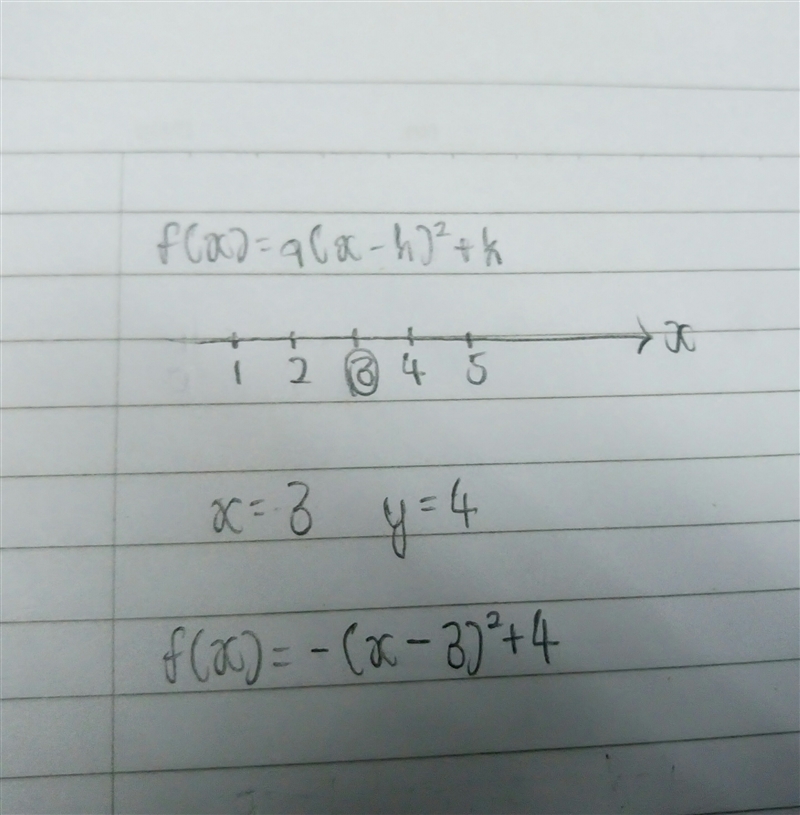 f(x)=a(x-h)²+k
1 2 3 4 5 x
x=3 y=4
f(x)=-(x-3)²+4